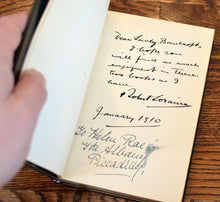 Dear Lady Bancroft,
I hope you
will find as much
enjoyment in these
two books as I
have
Robert Loraine
January 1910
Helen Rae
The Albany
Piccadilly